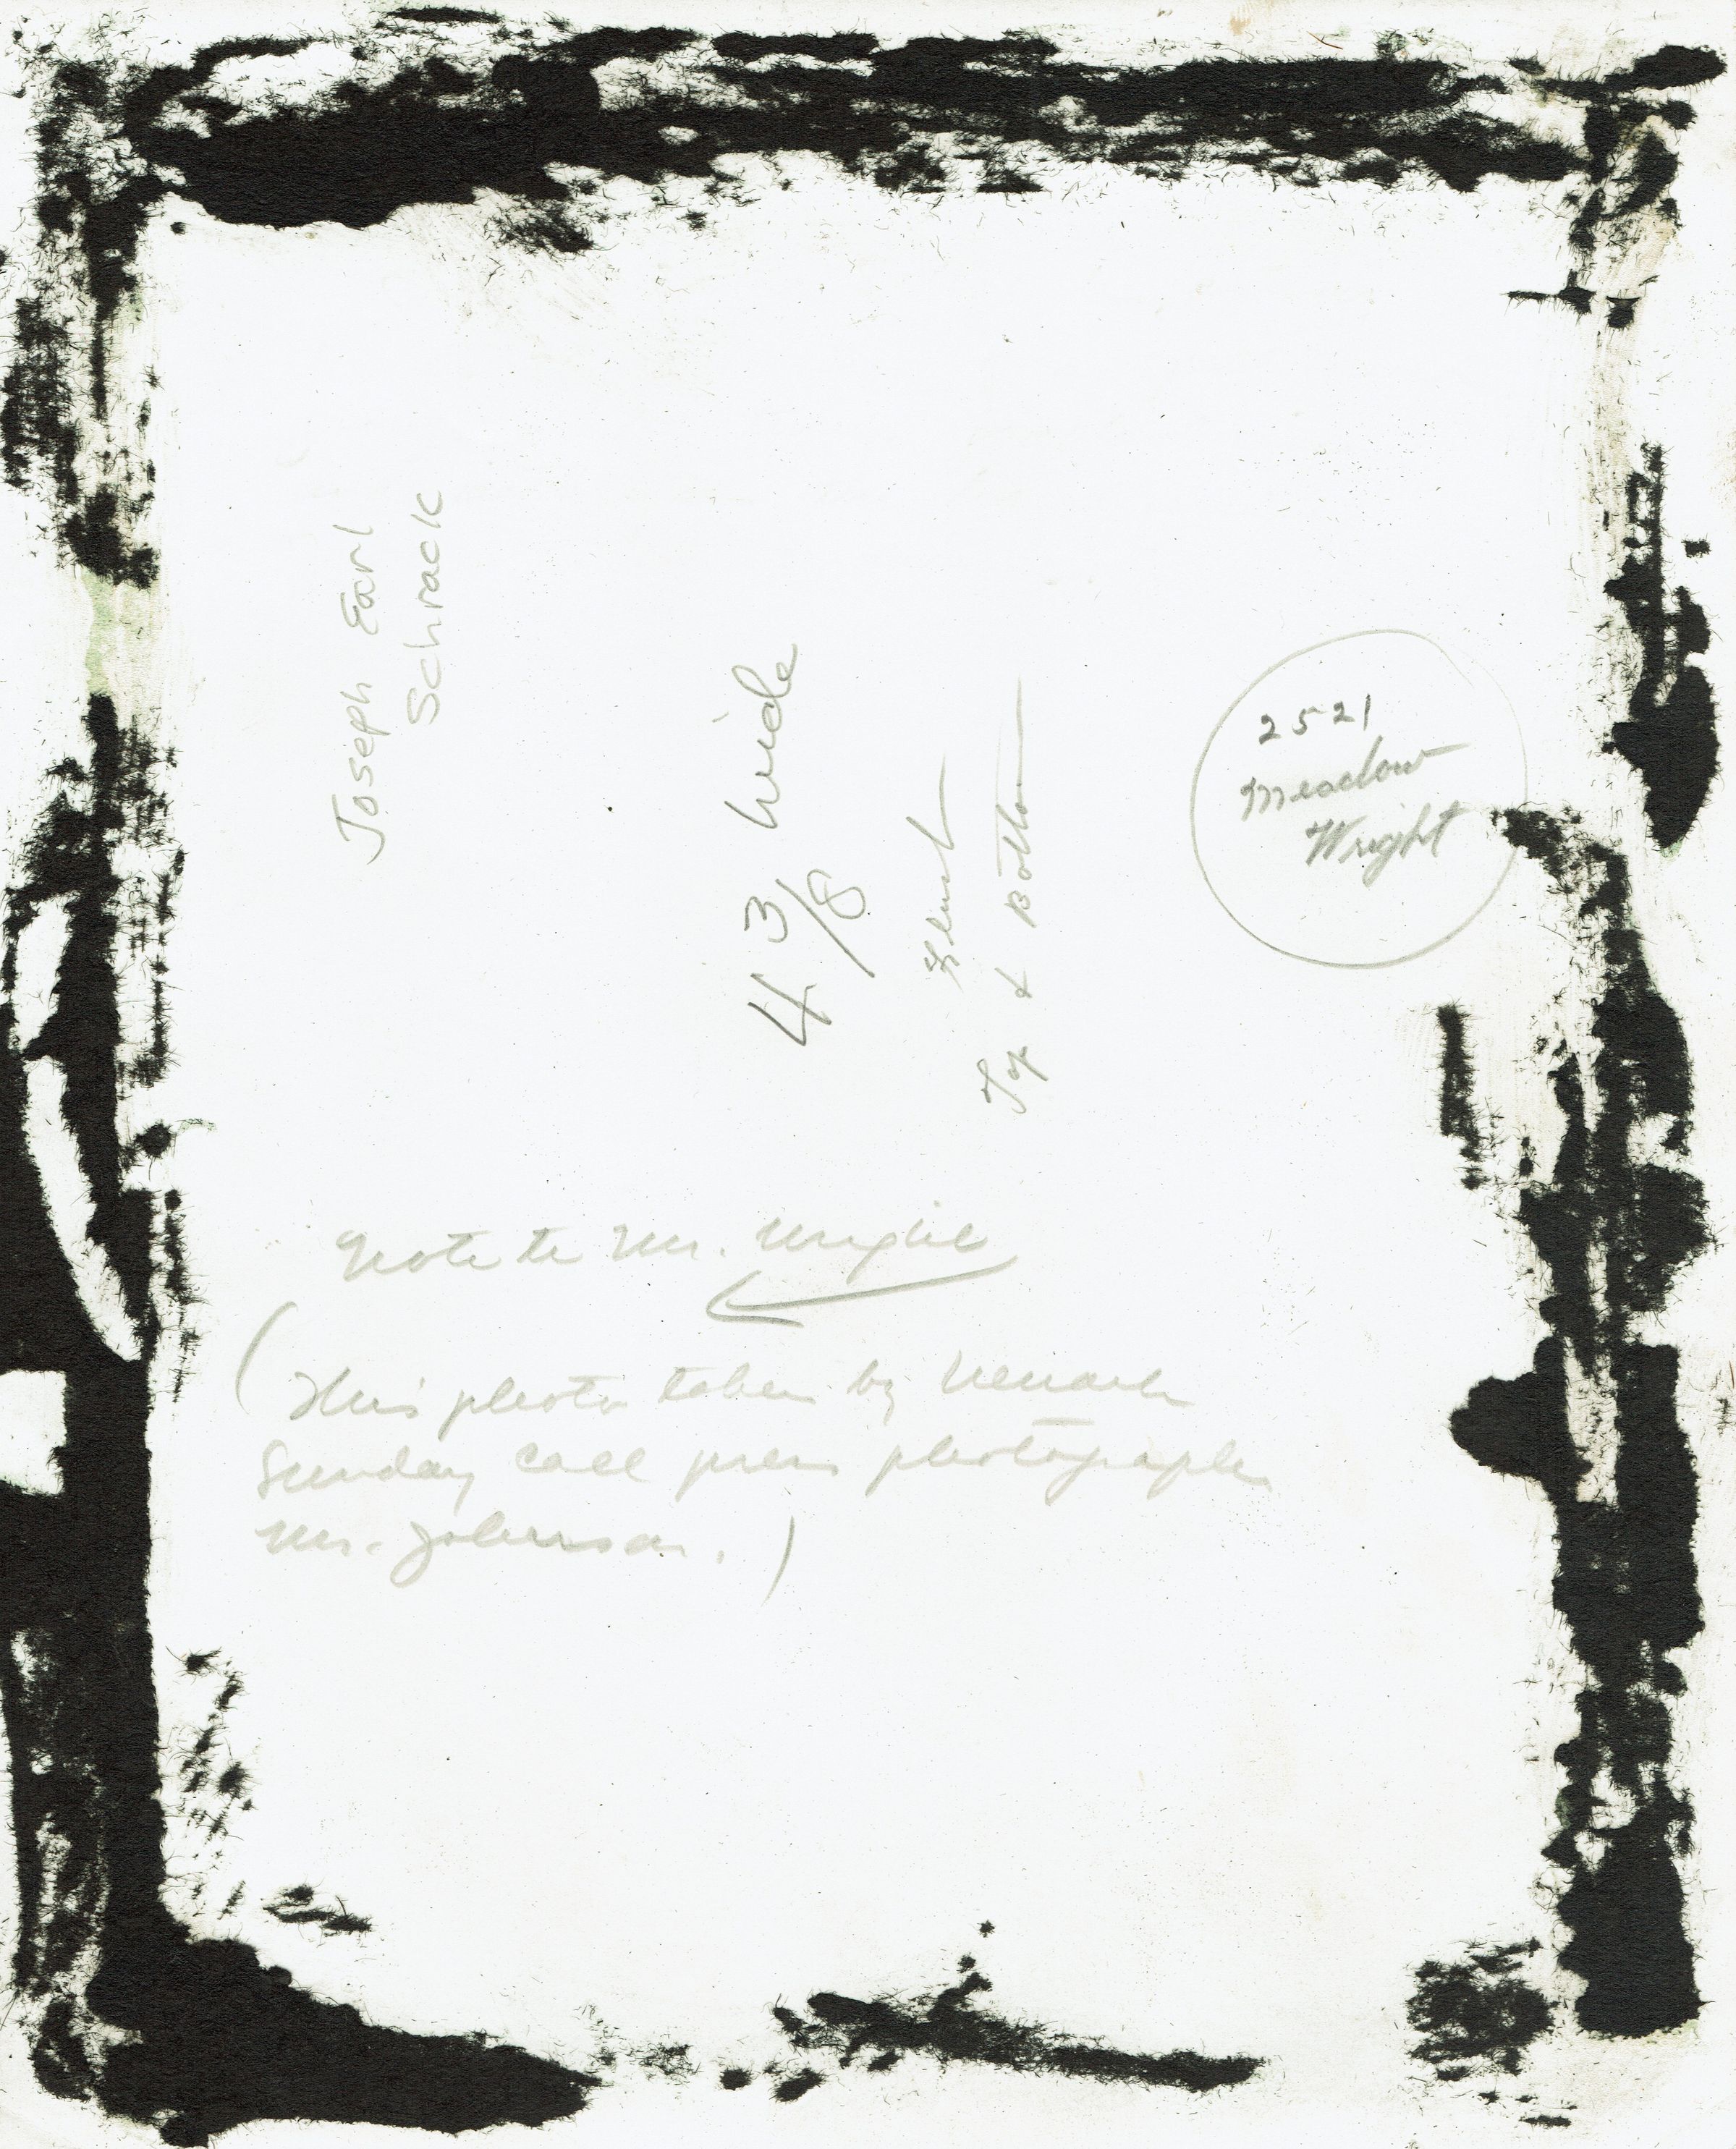 Joseph Earl
Schrack
4 3/8 wide
Flush
Top & Bottom
2521
Meadow
Wright
Note to Mr. Wright
(This photo taken by Newark
Sunday Call press photographer
Mr. Johnson.)